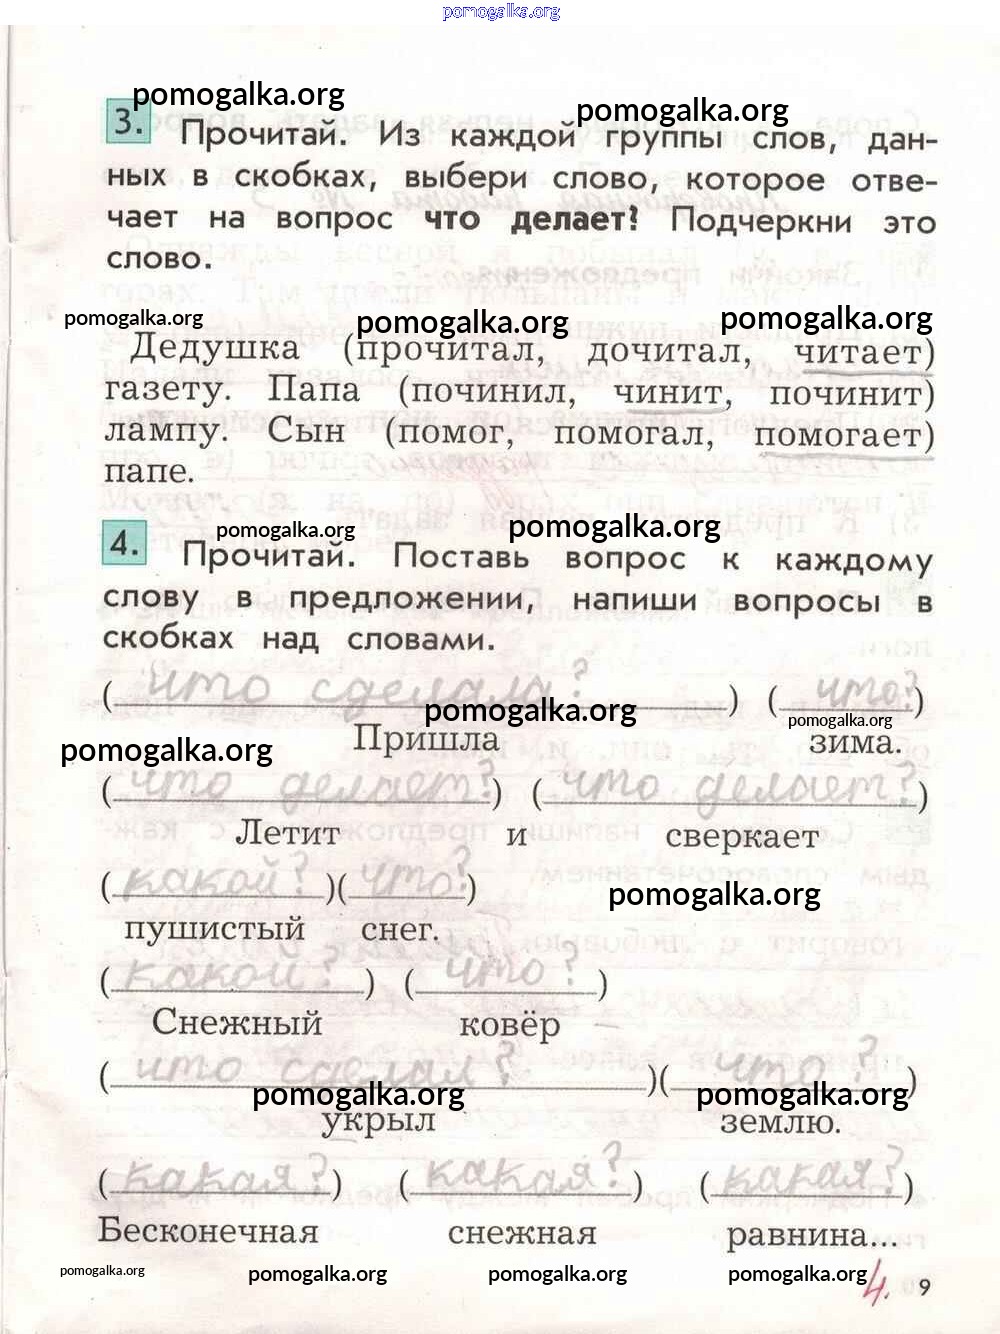 pomogalka.org
pomogalka.org
pomogalka.org
3. Прочитай. Из каждой группы слов, дан-
ных в скобках, выбери слово, которое отве-
чает на вопрос что делает? Подчеркни это
слово.
pomogalka.org pomogalka.org pomogalka.org
Дедушка (прочитал, дочитал, читает)
газету. Папа (починил, чинит, починит)
лампу. Сын (помог, помогал, помогает)
папе.
pomogalka.org pomogalka.org
4. Прочитай. Поставь вопрос к каждому
слову в предложении, напиши вопросы в
скобках над словами.
(что сделала?) (что?)
pomogalka.org pomogalka.org
Пришла зима.
pomogalka.org
(что делает?) (что делает?)
Летит и сверкает
(какой?)(что?)
pomogalka.org
пушистый снег.
(какой?) (что?)
Снежный ковёр
(что сделал?)(что?)
pomogalka.org pomogalka.org
укрыл землю.
(какая?) (какая?) (какая?)
Бесконечная снежная равнина...
pomogalka.org pomogalka.org pomogalka.org pomogalka.org 4. 9